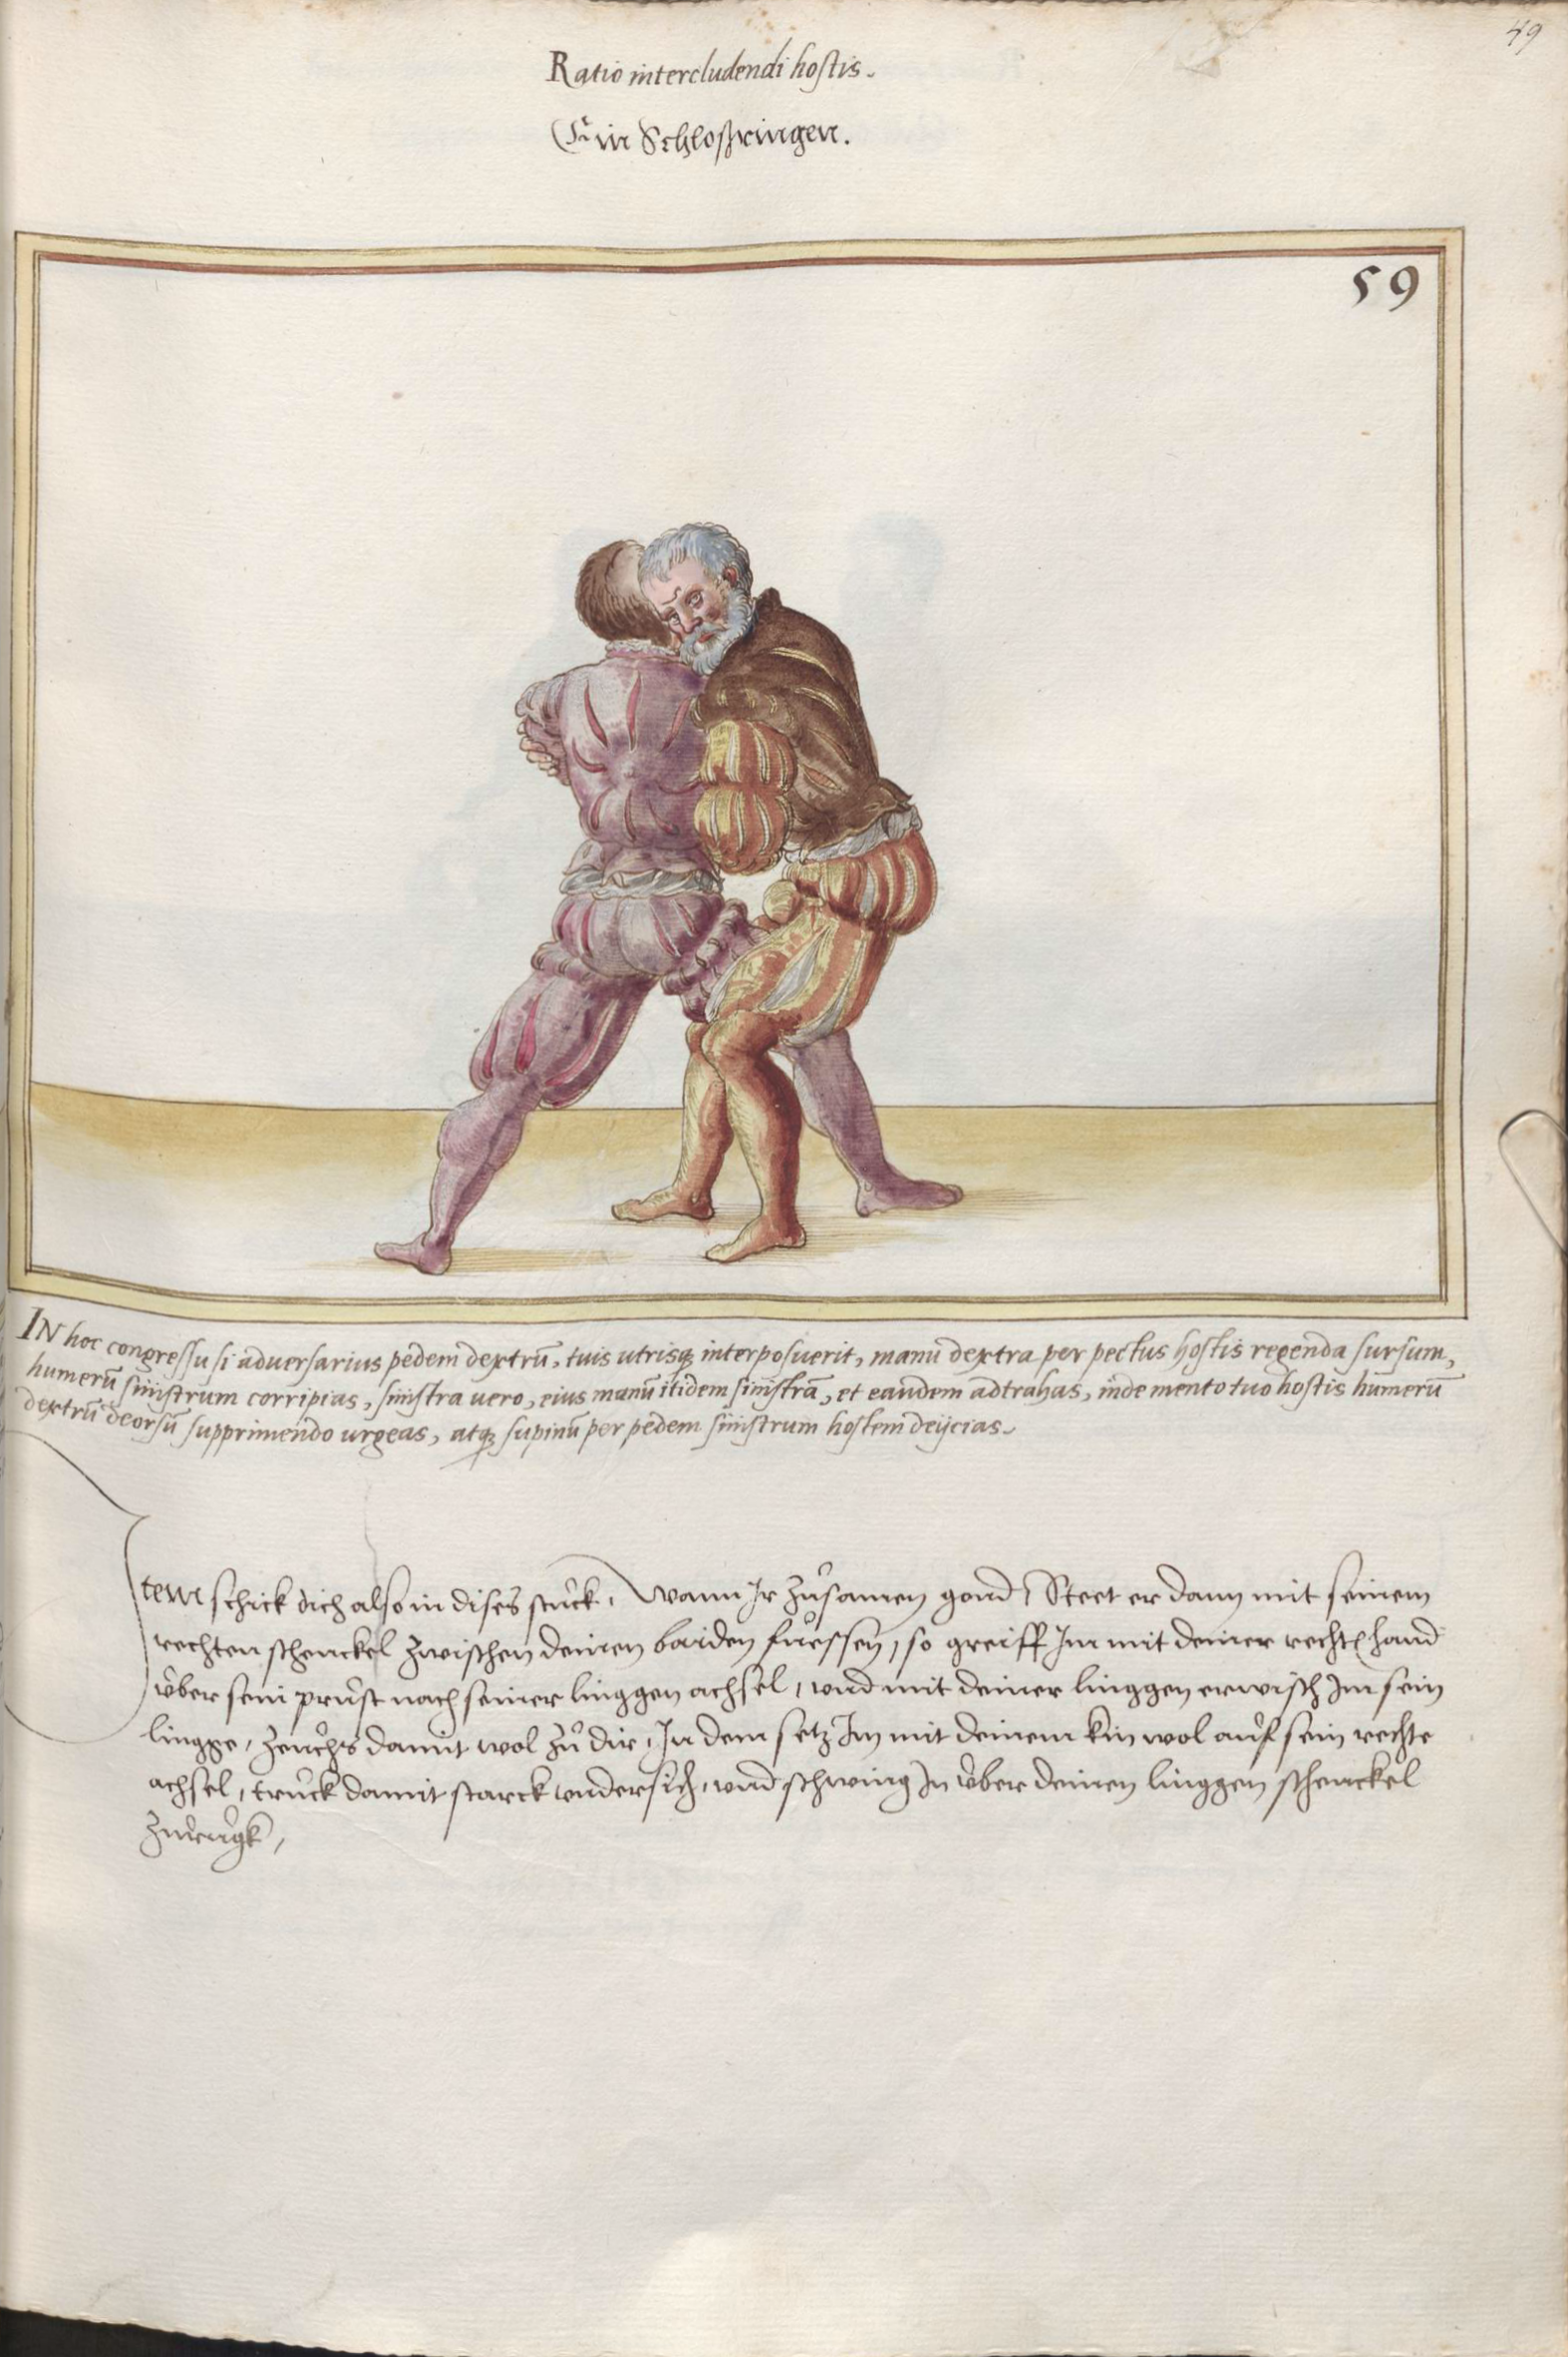 49
Ratio intercludendi hostis.
Ein Schloßringen.
59
IN hoc congressu si adversarius pedem dextrū, tuis utrisq; interposuerit, manu dextra per pectus hostis regenda sursum,
humerū sinistrum corripias, sinistra vero, eius manū itidem sinistrā, et eandem adtrahas, inde mento tuo hostis humerū
dextrū deorsū supprimendo urgeas, atq; supinū per pedem sinistrum hostem deijcias.
Item schick dich also in dises stuck, Wann Ir zůsamen gond, Steet er dann mit seinem
rechten schenckel zwischen deinen baiden fuessen, so greiff Im mit deiner rechtē hand
vber sein prust nach seiner linggen achsel, vnd mit deiner linggen erwisch Im sein
lingge, zeuchs damit wol zů dir, In dem setz Im mit deinem kin wol auf sein rechte
achsel, truck damit starck vndersich, vnd schwing In vber deinen linggen schenckel
zurugk,